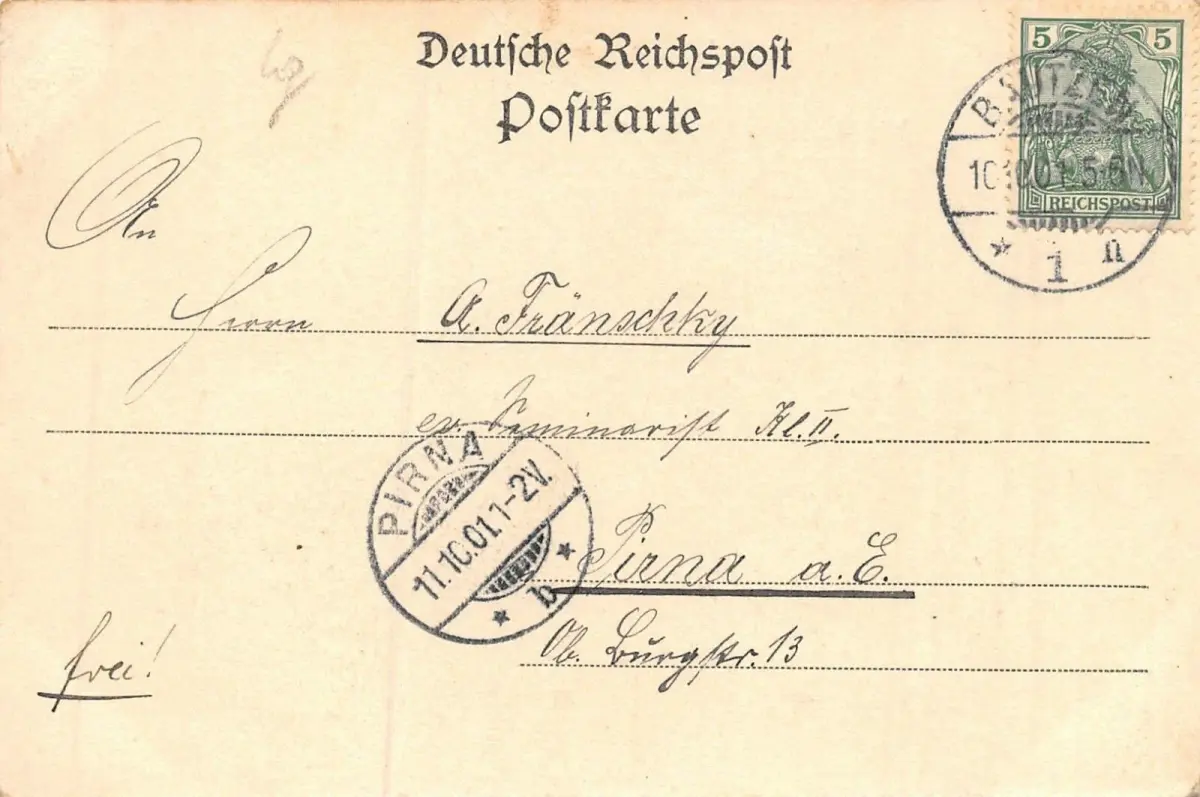 Deutsche Reichspost
Postkarte
5 5
REICHSPOST
BAUTZEN
10.10.01. 5-6N
* 1 n
An
Herrn A. Fränschky
ev. Seminarist Kl. II.
PIRNA
11.10.01. 1-2V.
* b *
Pirna a. E.
Ob. Burgstr. 13
frei!